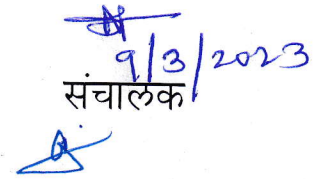 9/3/2023
संचालक